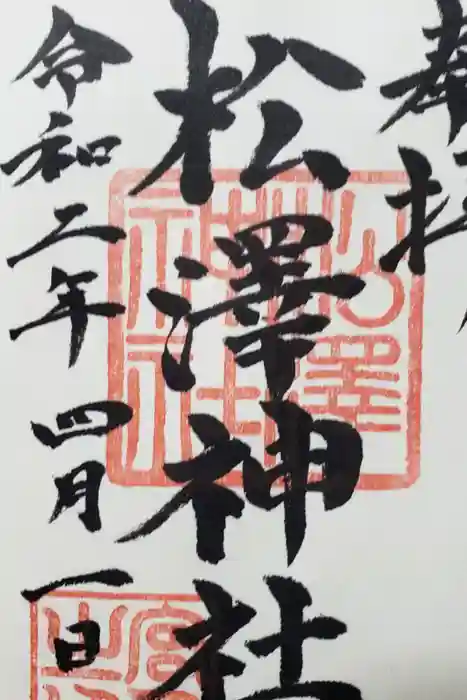 奉拝
松澤神社
令和二年四月一日
松澤神社